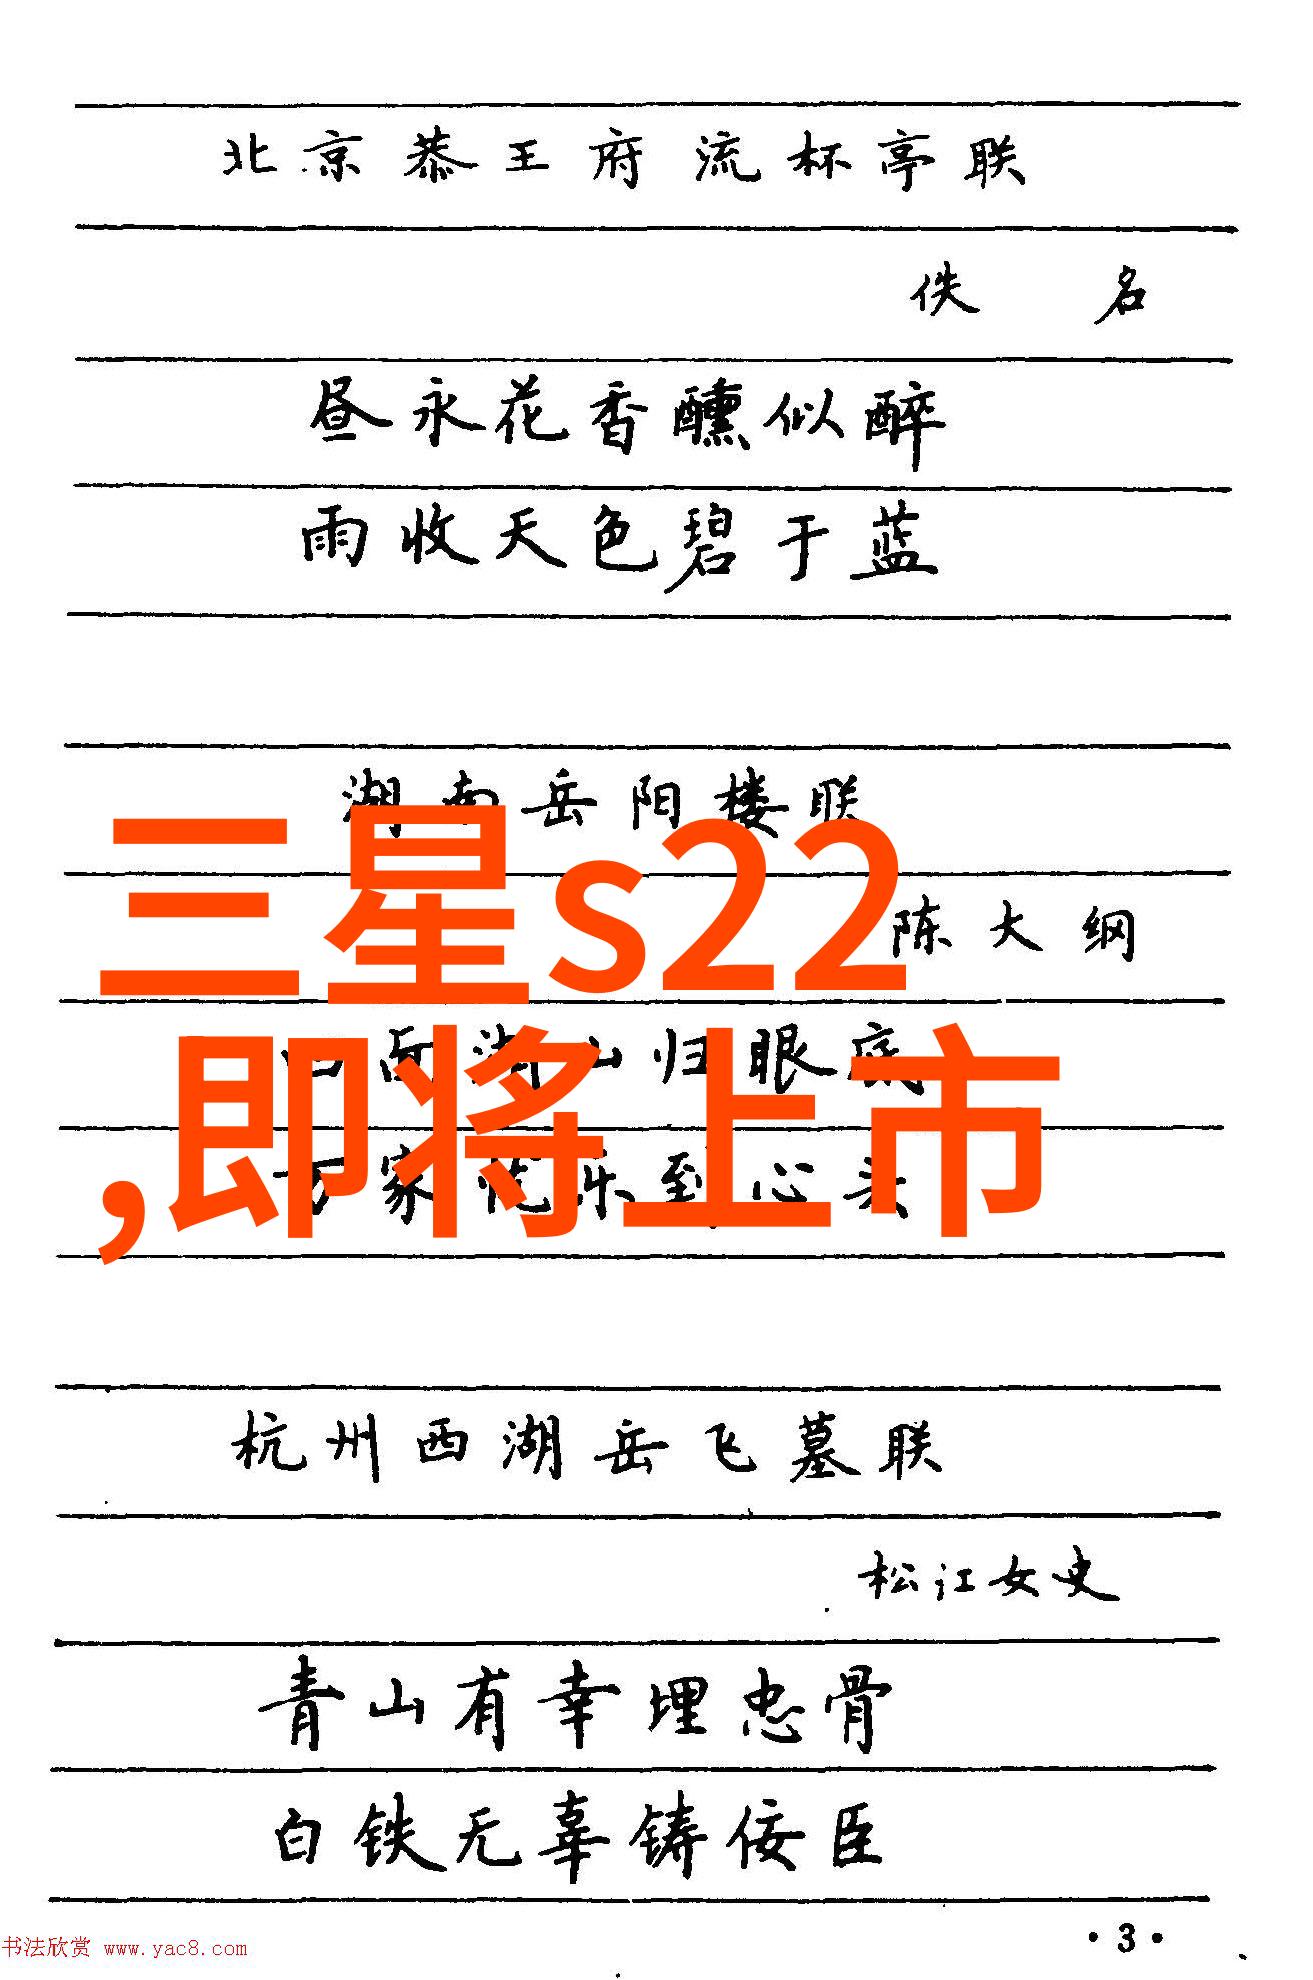 北京恭王府流杯亭联
佚名
昼永花香醺似醉
雨收天色碧于蓝
湖南岳阳楼联
三星s22
陈大纲
,即将上市
湖山归眼底
万家忧乐到心头
杭州西湖岳飞墓联
松江女史
青山有幸埋忠骨
白铁无辜铸佞臣
·3·
书法欣赏 www.yac8.com